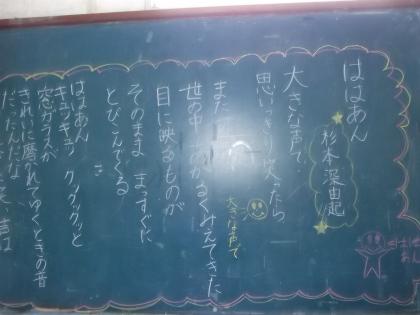 ははあん
杉本深由起
大きな声で
思いっきり笑ったら
また
世の中 明かるく見えてきた
大きな声で
目に映るものが
そのまま まっすぐに
とびこんでくる
ははあん
キュッキュッ クックックッと
窓ガラスが
きれいに磨かれてゆくときの音
だったんだな 笑い声は
はは
あん